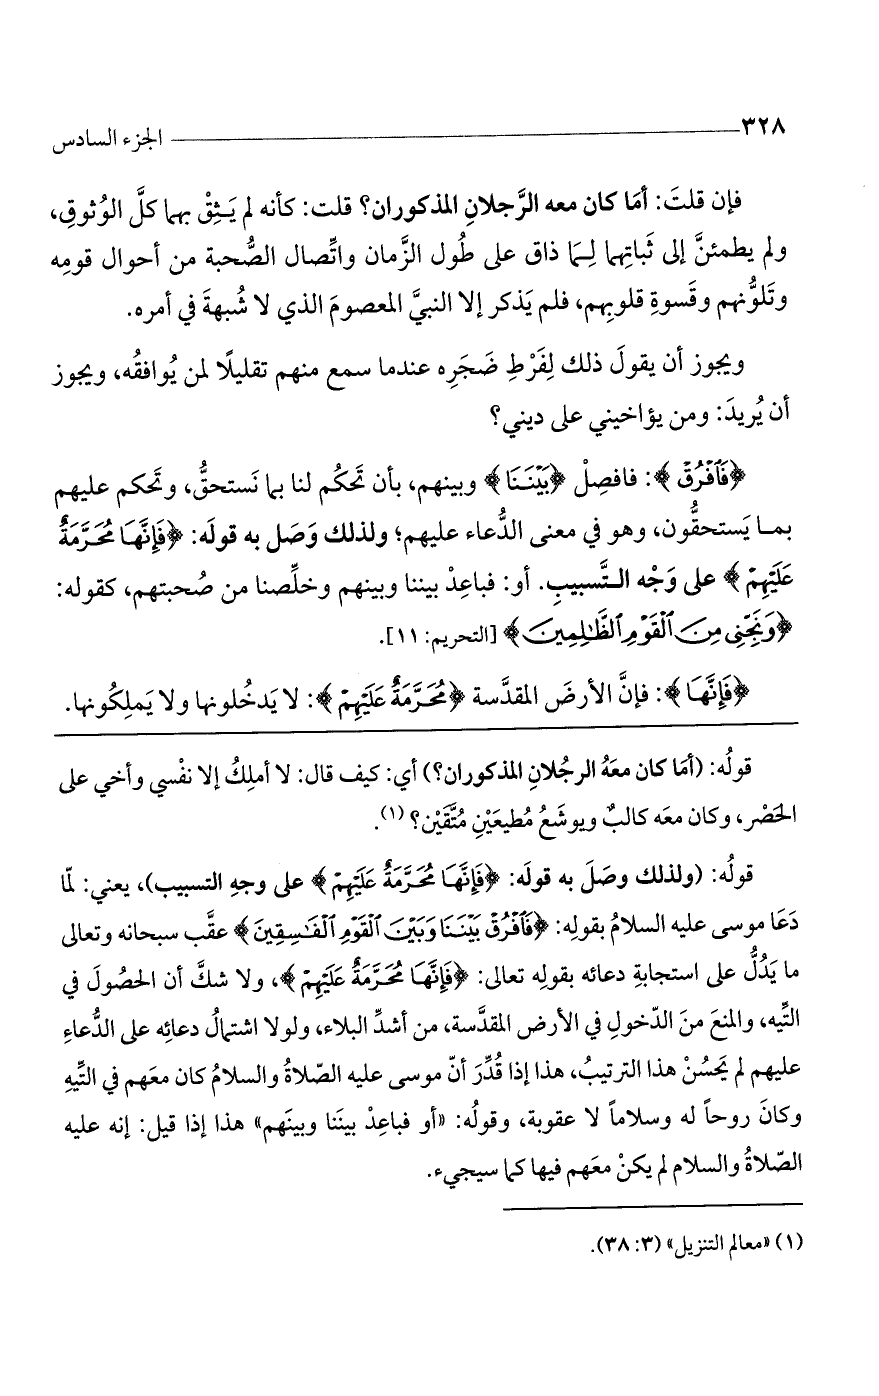 ٣٢٨ الجزء السادس
فإن قلتَ: أمَا كان معه الرَّجلانِ المذكوران؟ قلت: كأنه لم يَـثِقْ بهما كلَّ الوُثوقِ،
ولم يطمئنَّ إلى ثَباتِهما لِـمَا ذاق على طُول الزَّمان واتِّصال الصُّحبة من أحوال قومِه
وتَلوُّنهم وقَسوةِ قلوبِهم، فلم يَذكر إلا النبيَّ المعصومَ الذي لا شُبهةَ في أمره.
ويجوز أن يقولَ ذلك لِفَرْطِ ضَجَرِه عندما سمع منهم تقليلًا لمن يُوافقُه، ويجوز
أن يُريدَ: ومن يؤاخيني على ديني؟
﴿فَٱفْرُقْ﴾: فافصِلْ ﴿بَيْنَنَا﴾ وبينهم، بأن تَحكُم لنا بما نَستحقُّ، وتَحكم عليهم
بمـا يَستحقُّون، وهو في معنى الدُّعاء عليهم؛ ولذلك وَصَل به قولَه: ﴿فَإِنَّهَا مُحَرَّمَةٌ
عَلَيْهِمْ﴾ على وَجْه الـتَّسبيبِ. أو: فباعِدْ بيننا وبينهم وخلِّصنا من صُحبتهم، كقوله:
﴿وَنَجِّنِى مِنَ ٱلْقَوْمِ ٱلظَّـٰلِمِينَ﴾ [التحريم: ١١].
﴿فَإِنَّهَا﴾: فإنَّ الأرضَ المقدَّسة ﴿مُحَرَّمَةٌ عَلَيْهِمْ﴾: لا يَدخُلونها ولا يَملِكُونها.
قولُه: (أمَا كان معَهُ الرجُلانِ المذكوران؟) أي: كيف قال: لا أملِكُ إلا نفْسي وأخي على
الحَصْر، وكان معَه كالبٌ ويوشَعُ مُطيعَيْنِ مُتَّقَيْن؟ (١).
قولُه: (ولذلك وصَلَ به قولَه: ﴿فَإِنَّهَا مُحَرَّمَةٌ عَلَيْهِمْ﴾ على وجهِ التسبيب)، يعني: لمّا
دَعَا موسى عليه السلامُ بقولِه: ﴿فَٱفْرُقْ بَيْنَنَا وَبَيْنَ ٱلْقَوْمِ ٱلْفَـٰسِقِينَ﴾ عقَّب سبحانه وتعالى
ما يَدُلُّ على استجابةِ دعائه بقولِه تعالى: ﴿فَإِنَّهَا مُحَرَّمَةٌ عَلَيْهِمْ﴾، ولا شكَّ أن الحصُولَ في
التِّيه، والمنعَ منَ الدّخولِ في الأرض المقدَّسة، من أشدِّ البلاء، ولولا اشتمالُ دعائِه على الدُّعاءِ
عليهم لم يَحسُنْ هذا الترتيبُ، هذا إذا قُدِّرَ أنّ موسى عليه الصّلاةُ والسلامُ كان معَهم في التِّيهِ
وكانَ روحاً له وسلاماً لا عقوبة، وقولُه: «أو فباعِدْ بينَنا وبينَهم» هذا إذا قيل: إنه عليه
الصّلاةُ والسلام لم يكنْ معَهم فيها كما سيجيء.
(١) «معالم التنزيل» (٣: ٣٨).